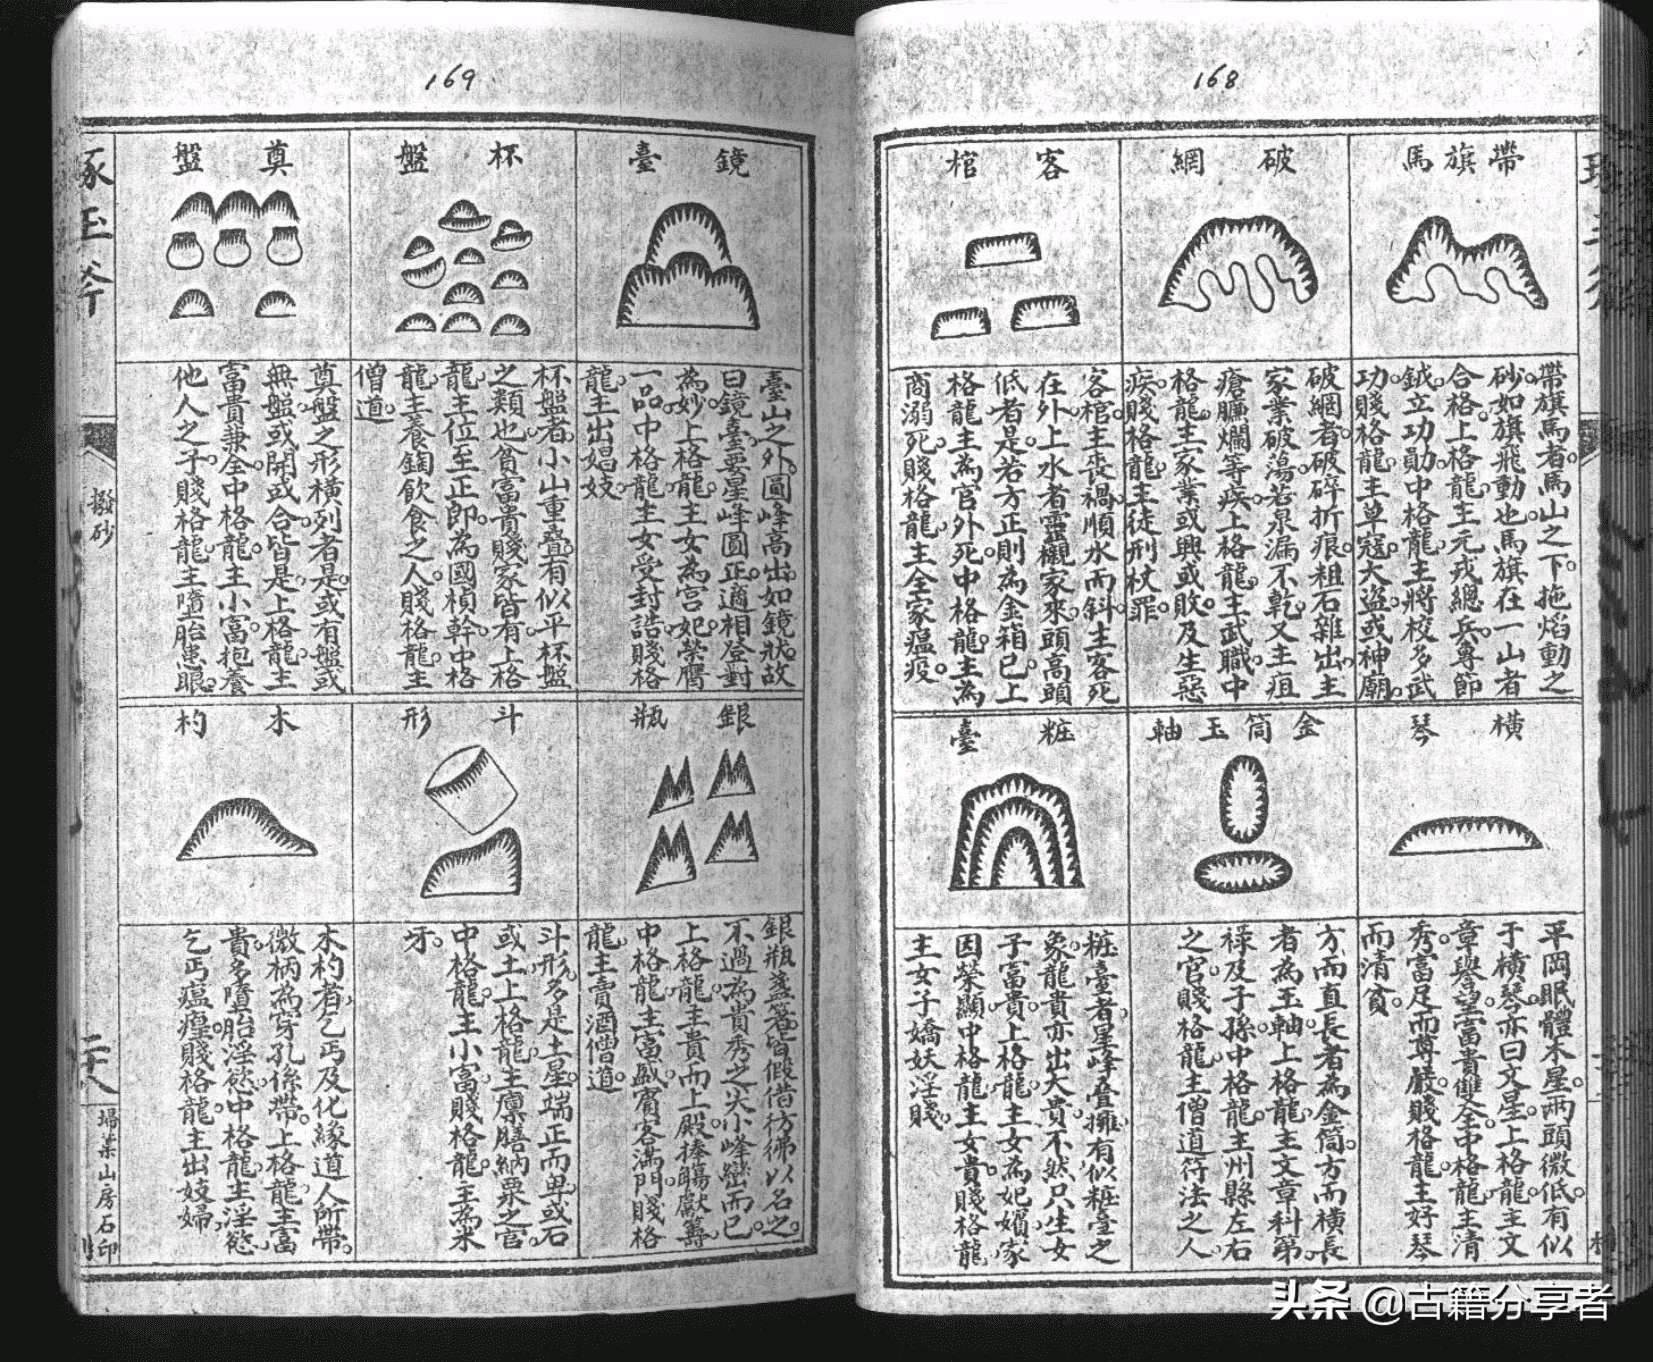 168
帶旗馬
帶旗馬者馬山之下拖焰動之
砂如旗飛動也馬旗在一山者
合格上格龍主元戎總兵專節
鉞立功勛中格龍主將校多武
功賤格龍主草寇大盜或神廟
破網
破網者破碎折痕粗石雜出主
家業破蕩若泉漏不乾又主疽
瘡臁爛等疾上格龍主武職中
格龍主家業或興或敗及生惡
疾賤格龍主徒刑杖罪
客棺
客棺主喪禍順水而斜主客死
在外上水者靈櫬家來頭高頭
低者是若方正則為金箱已上
格龍主為官外死中格龍主為
商溺死賤格龍主全家瘟疫
橫琴
平岡眠體木星兩頭微低有似
于橫琴亦曰文星上格龍主文
章譽望富貴雙全中格龍主清
秀富足而尊嚴賤格龍主好琴
而清貧
金筒玉軸
方而直長者為金筒方而橫長
者為玉軸上格龍主文章科第
祿及子孫中格龍主州縣左右
之官賤格龍主僧道符法之人
粧臺
粧臺者星峰疊擁有似粧臺之
象龍貴亦出大貴不然只生女
子富貴上格龍主女為妃嬪家
因榮顯中格龍主女貴賤格龍
主女子嬌妖淫賤
169
鏡臺
臺山之外圓峰高出如鏡狀故
曰鏡臺要星峰圓正適相登對
為妙上格龍主女為宮妃榮膺
一品中格龍主女受封誥賤格
龍主出娼妓
杯盤
杯盤者小山重疊有似乎杯盤
之類也貧富貴賤家皆有上格
龍主位至正即為國楨幹中格
龍主養鞠飲食之人賤格龍主
僧道
奠盤
奠盤之形橫列者是或有盤或
無盤或開或合皆是上格龍主
富貴兼全中格龍主小富抱養
他人之子賤格龍主墮胎患眼
銀瓶
銀瓶盞筯皆假借彷彿以名之
不過為貴秀之尖小峰巒而已
上格龍主貴而上殿捧觴獻籌
中格龍主富盛賓客滿門賤格
龍主賣酒僧道
斗形
斗形多是土星端正而卑或石
或土上格龍主廩膳納粟之官
中格龍主小富賤格龍主為米
牙
木杓
木杓者乞丐及化緣道人所帶
微柄為穿孔係帶上格龍主富
貴多墮胎淫慾中格龍主淫慾
乞丐瘟㾮賤格龍主出妓婦
琢玉斧
撥砂
二十八
埽葉山房石印
头条 @古籍分享者